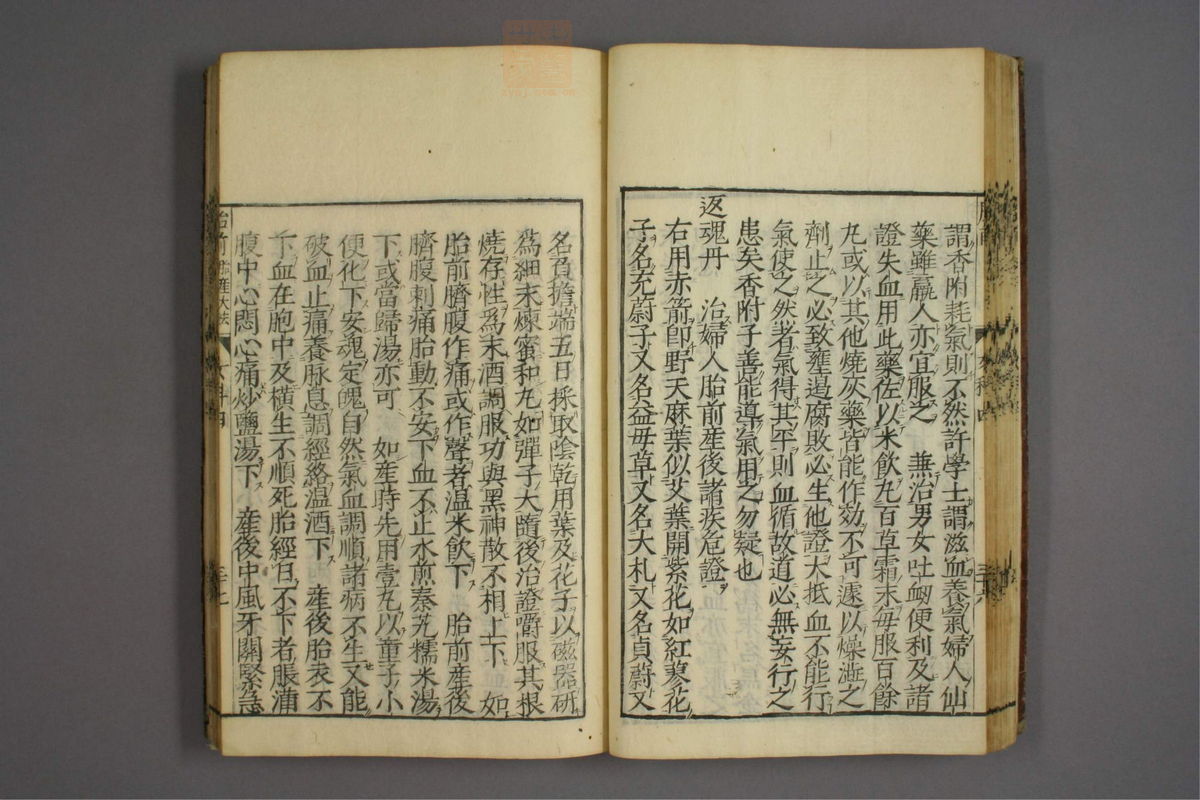 謂香附耗氣則不然許學士謂滋血養氣婦人仙
藥雖羸人亦宜服之　兼治男女吐衂便利及諸
證失血用此藥佐以米飲丸百草霜末每服百餘
丸或以其他燒灰藥皆能作効不可遽以燥澁之
劑止之必致壅遏腐敗必生他證大抵血不能行
氣使之然者氣得其平則血循故道必無妄行之
患矣香附子善能導氣用之勿疑也
返魂丹　治婦人胎前産後諸疾危證
右用赤箭卽野天麻葉似艾葉開紫花如紅蓼花
子名充蔚子又名益毋草又名大札又名貞蔚又
名負擔端五日採取陰乾用葉及花子以磁器研
爲細末煉蜜和丸如彈子大隨後治證嚼服其根
燒存性爲末酒調服功與黑神散不相上下　如
胎前臍腹作痛或作聲者温米飲下　胎前産後
臍腹刺痛胎動不安下血不止水煎秦艽糯米湯
下或當歸湯亦可　如産時先用壹丸以童子小
便化下安魂定魄自然氣血調順諸病不生又能
破血止痛養脉息調經絡温酒下　産後胎衣不
下血在胞中及橫生不順死胎經日不下者脹滿
腹中心悶心痛炒鹽湯下　産後中風牙關緊急